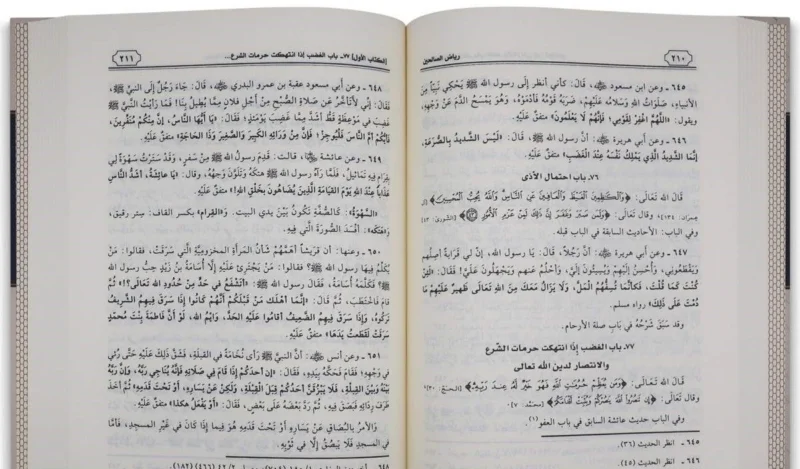 ٢١٠
رياض الصالحين
٦٤٥ ـ وعن ابن مسعود ﷺ، قَالَ: كأني أنظر إلى رسول الله ﷺ يَحْكِي نَبِيّاً مِنَ
الأنبياءِ، صَلَوَاتُ اللهِ وَسَلَامُه عَلَيْهِمْ، ضَرَبَهُ قَوْمُهُ فَأَدْمَوْهُ، وَهُوَ يَمْسَحُ الدَّمَ عَنْ وَجْهِهِ،
ويقول: «اللَّهُمَّ اغْفِرْ لِقَوْمِي؛ فَإِنَّهُمْ لَا يَعْلَمُونَ» متفقٌ عَلَيْهِ.
٦٤٦ ـ وعن أبي هريرة: أنَّ رسولَ اللهِ ﷺ، قَالَ: «لَيْسَ الشَّدِيدُ بِالصُّرَعَةِ،
إِنَّمَا الشَّدِيدُ الَّذِي يَمْلِكُ نَفْسَهُ عِنْدَ الْغَضَبِ» متفقٌ عَلَيْهِ.
٧٦ـ باب احتمال الأذى
قَالَ اللهُ تَعَالَى: ﴿وَالْكَاظِمِينَ الْغَيْظَ وَالْعَافِينَ عَنِ النَّاسِ وَاللَّهُ يُحِبُّ الْمُحْسِنِينَ﴾ [آل
عمران: ١٣٤] وقال تَعَالَى: ﴿وَلَمَن صَبَرَ وَغَفَرَ إِنَّ ذَلِكَ لَمِنْ عَزْمِ الْأُمُورِ﴾ [الشورى: ٤٣]
وفي الباب: الأحاديث السابقة في الباب قبله.
٦٤٧ ـ وعن أبي هريرة: أنَّ رَجُلاً، قَالَ: يَا رسولَ الله، إنَّ لي قَرَابَةً أصِلُهم
وَيَقْطَعُوني، وَأُحْسِنُ إِلَيْهِمْ وَيُسِيئُونَ إِلَيَّ، وَأَحْلُمُ عنهم وَيَجْهَلُونَ عَلَيَّ! فَقَالَ: «لَئِنْ
كُنْتَ كَمَا قُلْتَ، فَكَأَنَّمَا تُسِفُّهُمُ الْمَلَّ، وَلَا يَزَالُ مَعَكَ مِنَ اللهِ تَعَالَى ظَهِيرٌ عَلَيْهِمْ مَا
دُمْتَ عَلَى ذَلِكَ» رواه مسلم.
وقد سَبَقَ شَرْحُهُ في باب صلة الأرحام.
٧٧ـ باب الغضب إذا انتهكت حرمات الشّرع
والانتصار لدين الله تعالى
قَالَ اللهُ تَعَالَى: ﴿وَمَن يُعَظِّمْ حُرُمَاتِ اللَّهِ فَهُوَ خَيْرٌ لَّهُ عِندَ رَبِّهِ﴾ [الحج: ٣٠]
وقال تَعَالَى: ﴿إِن تَنصُرُوا اللَّهَ يَنصُرْكُمْ وَيُثَبِّتْ أَقْدَامَكُمْ﴾ [محمد: ٧].
وفي الباب حديث عائشة السابق في باب العفو(١).
٦٤٥ ـ انظر الحديث (٣٦).
٦٤٦ ـ انظر الحديث (٤٥).
[الكتاب الأول] ٧٧ـ باب الغضب إذا انتهكت حرمات الشرع...
٢١١
٦٤٨ ـ وعن أبي مسعود عقبة بن عمرو البدري، قَالَ: جَاءَ رَجُلٌ إِلَى النبيِّ ﷺ،
فَقَالَ: إِنِّي لأَتَأَخَّرُ عَن صَلَاةِ الصُّبْحِ مِنْ أَجْلِ فُلانٍ مِمَّا يُطِيلُ بِنَا! فَمَا رَأيْتُ النَّبيَّ ﷺ
غَضِبَ في مَوْعِظَةٍ قَطُّ أشَدَّ مِمَّا غَضِبَ يَوْمَئذٍ؛ فَقَالَ: «يَا أيُّهَا النَّاسُ، إنَّ مِنْكُمْ مُنَفِّرِينَ،
فَأيُّكُمْ أمَّ النَّاسَ فَلْيُوجِزْ؛ فَإنَّ مِنْ وَرَائِهِ الْكَبِيرَ وَالصَّغِيرَ وَذَا الْحَاجَةِ» متفقٌ عَلَيْهِ.
٦٤٩ ـ وعن عائشة، قالت: قَدِمَ رسولُ اللهِ ﷺ مِنْ سَفَرٍ، وَقَدْ سَتَرْتُ سَهْوَةً لِي
بِقِرَامٍ فِيهِ تَمَاثِيلُ، فَلَمَّا رَآهُ رسول الله ﷺ هتكَهُ وَتَلَوَّنَ وَجْهُهُ، وقال: «يَا عَائِشَةُ، أشَدُّ النَّاسِ
عَذَاباً عِنْدَ اللهِ يَوْمَ الْقِيَامَةِ الَّذِينَ يُضَاهُونَ بِخَلْقِ اللهِ!» متفقٌ عَلَيْهِ.
«السَّهْوَةُ»: كَالصُّفَّةِ تَكُونُ بَيْنَ يدي البيت. و«القِرام» بكسر القاف: سِتر رقيق،
و«هَتَكَهُ»: أَفْسَدَ الصُّورَةَ الَّتي فِيهِ.
٦٥٠ ـ وعنها: أن قريشاً أهَمَّهُمْ شَأنُ المَرأَةِ المخزوميَّةِ الَّتي سَرَقَتْ، فقالوا: مَنْ
يُكَلِّمُ فِيهَا رسول الله ﷺ؟ فقالوا: مَنْ يَجْتَرِئُ عَلَيْهِ إلَّا أُسَامَةُ بْنُ زَيْدٍ حِبُّ رسول الله
ﷺ؟ فَكَلَّمَهُ أُسَامَةُ، فَقَالَ رسول الله ﷺ: «أتَشْفَعُ في حَدٍّ مِنْ حُدُودِ اللهِ تَعَالَى؟!» ثُمَّ
قَامَ فَاخْتَطَبَ، ثُمَّ قَالَ: «إنَّمَا أَهْلَكَ مَنْ قَبْلَكُمْ أنَّهُمْ كَانُوا إذَا سَرَقَ فِيهِمُ الشَّرِيفُ
تَرَكُوهُ، وَإِذَا سَرَقَ فِيهِمُ الضَّعِيفُ أقامُوا عَلَيْهِ الحَدَّ، وَايْمُ الله، لَوْ أَنَّ فَاطِمَةَ بِنْتَ مُحمَّدٍ
سَرَقَتْ لَقَطَعتُ يَدَهَا» متفقٌ عَلَيْهِ.
٦٥١ ـ وعن أنس: أنَّ النبيَّ ﷺ رَأى نُخَامَةً في القبلَةِ، فَشَقَّ ذَلِكَ عَلَيْهِ حَتَّى رُؤِيَ
في وَجْهِهِ؛ فَقَامَ فَحَكَّهُ بِيَدِهِ، فَقَالَ: «إن أحدَكُمْ إِذَا قَامَ فِي صَلَاتِهِ فَإنَّهُ يُنَاجِي رَبَّهُ، وَإنَّ رَبَّهُ
بَيْنَهُ وَبَيْنَ القِبْلَةِ، فَلَا يَبْزُقَنَّ أَحَدُكُمْ قِبَلَ الْقِبْلَةِ، وَلَكِنْ عَنْ يَسَارِهِ، أَوْ تَحْتَ قَدَمِهِ» ثُمَّ أَخَذَ
طَرَفَ رِدَائِهِ فَبَصَقَ فِيهِ، ثُمَّ رَدَّ بَعْضَهُ عَلَى بَعْضٍ، فَقَالَ: «أَوْ يَفْعَلُ هَكَذَا» متفقٌ عَلَيْهِ.
وَالأمرُ بالبُصَاقِ عَنْ يَسَارِهِ أَوْ تَحْتَ قَدَمِهِ هُوَ فِيمَا إِذَا كَانَ في غَيْرِ المَسجِدِ، فَأَمَّا
في المسجدِ فَلَا يَبصُقُ إلَّا في ثَوْبِهِ.